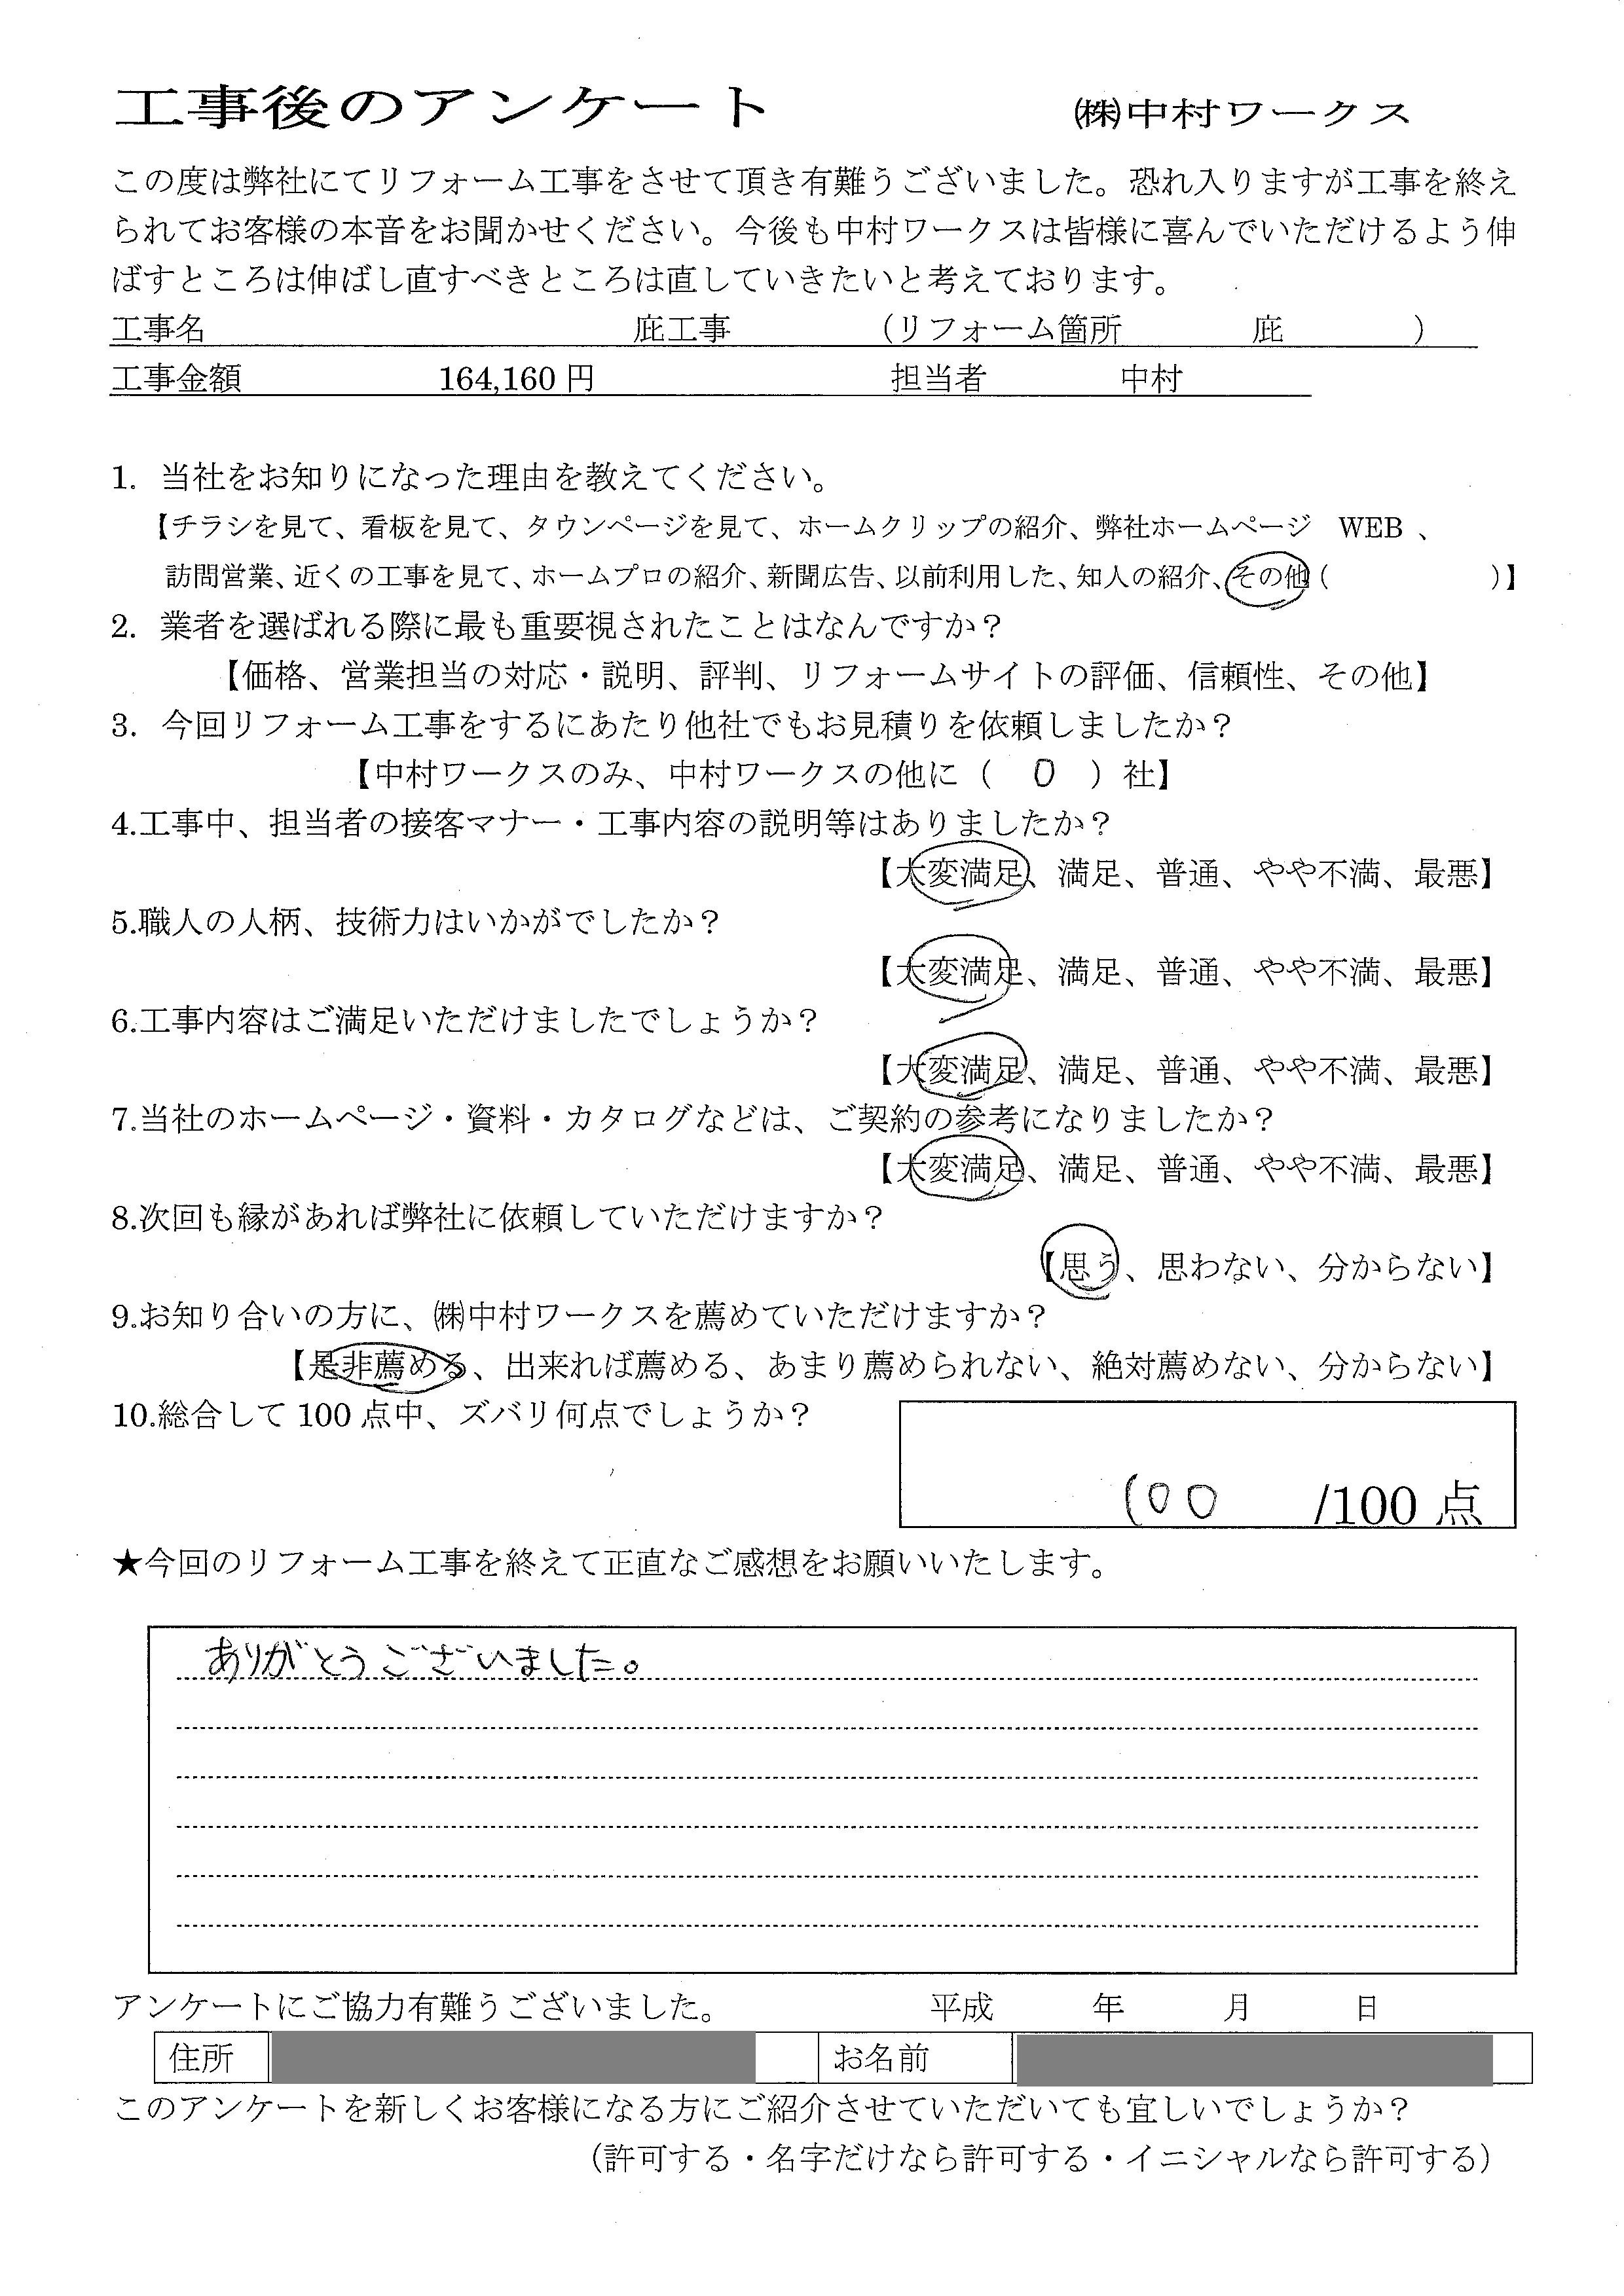 工事後のアンケート ㈱中村ワークス
この度は弊社にてリフォーム工事をさせて頂き有難うございました。恐れ入りますが工事を終え
られてお客様の本音をお聞かせください。今後も中村ワークスは皆様に喜んでいただけるよう伸
ばすところは伸ばし直すべきところは直していきたいと考えております。
工事名 庇工事 （リフォーム箇所 庇 ）
工事金額 164,160 円 担当者 中村
1. 当社をお知りになった理由を教えてください。
【チラシを見て、看板を見て、タウンページを見て、ホームクリップの紹介、弊社ホームページ WEB 、
訪問営業、近くの工事を見て、ホームプロの紹介、新聞広告、以前利用した、知人の紹介、その他（ ）】
2. 業者を選ばれる際に最も重要視されたことはなんですか？
【価格、営業担当の対応・説明、評判、リフォームサイトの評価、信頼性、その他】
3. 今回リフォーム工事をするにあたり他社でもお見積りを依頼しましたか？
【中村ワークスのみ、中村ワークスの他に（ 0 ）社】
4.工事中、担当者の接客マナー・工事内容の説明等はありましたか？
【大変満足、満足、普通、やや不満、最悪】
5.職人の人柄、技術力はいかがでしたか？
【大変満足、満足、普通、やや不満、最悪】
6.工事内容はご満足いただけましたでしょうか？
【大変満足、満足、普通、やや不満、最悪】
7.当社のホームページ・資料・カタログなどは、ご契約の参考になりましたか？
【大変満足、満足、普通、やや不満、最悪】
8.次回も縁があれば弊社に依頼していただけますか？
【思う、思わない、分からない】
9.お知り合いの方に、㈱中村ワークスを薦めていただけますか？
【是非薦める、出来れば薦める、あまり薦められない、絶対薦めない、分からない】
10.総合して 100 点中、ズバリ何点でしょうか？
100 /100 点
★今回のリフォーム工事を終えて正直なご感想をお願いいたします。
ありがとうございました。
アンケートにご協力有難うございました。 平成 年 月 日
住所 お名前
このアンケートを新しくお客様になる方にご紹介させていただいても宜しいでしょうか？
（許可する・名字だけなら許可する・イニシャルなら許可する）